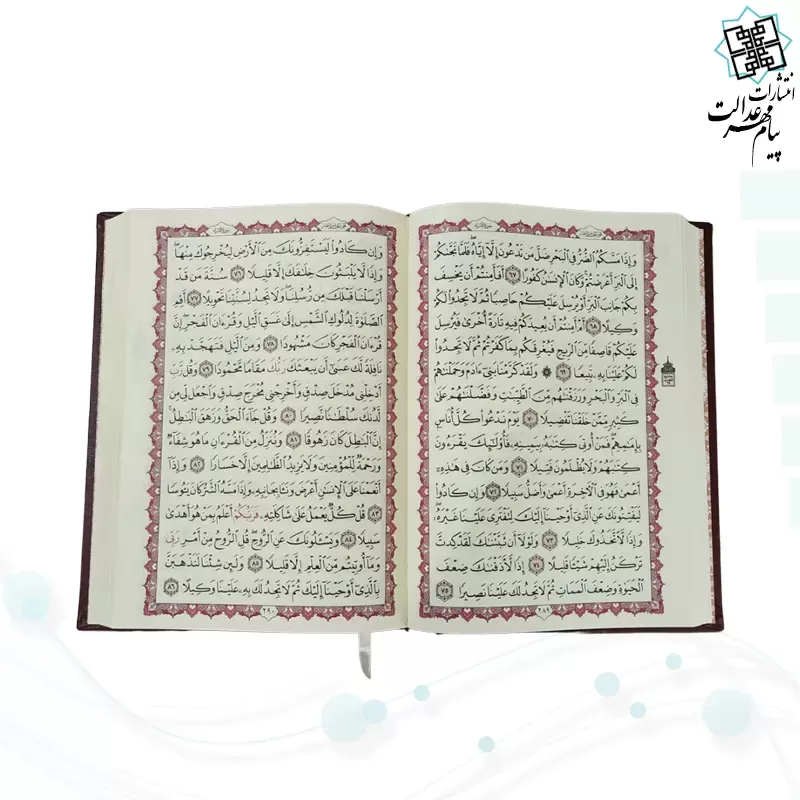 انتشارات
پیام مهر عدالت
وَإِذَا مَسَّكُمُ الضُّرُّ فِي الْبَحْرِ ضَلَّ مَن تَدْعُونَ إِلَّا إِيَّاهُ فَلَمَّا نَجَّاكُمْ
إِلَى الْبَرِّ أَعْرَضْتُمْ وَكَانَ الْإِنسَانُ كَفُورًا ٦٧ أَفَأَمِنتُمْ أَن يَخْسِفَ
بِكُمْ جَانِبَ الْبَرِّ أَوْ يُرْسِلَ عَلَيْكُمْ حَاصِبًا ثُمَّ لَا تَجِدُوا لَكُمْ
وَكِيلًا ٦٨ أَمْ أَمِنتُمْ أَن يُعِيدَكُمْ فِيهِ تَارَةً أُخْرَىٰ فَيُرْسِلَ
عَلَيْكُمْ قَاصِفًا مِّنَ الرِّيحِ فَيُغْرِقَكُم بِمَا كَفَرْتُمْ ثُمَّ لَا تَجِدُوا
لَكُمْ عَلَيْنَا بِهِ تَبِيعًا ٦٩ وَلَقَدْ كَرَّمْنَا بَنِي آدَمَ وَحَمَلْنَاهُمْ
فِي الْبَرِّ وَالْبَحْرِ وَرَزَقْنَاهُم مِّنَ الطَّيِّبَاتِ وَفَضَّلْنَاهُمْ عَلَىٰ
كَثِيرٍ مِّمَّنْ خَلَقْنَا تَفْضِيلًا ٧٠ يَوْمَ نَدْعُوا كُلَّ أُنَاسٍ
بِإِمَامِهِمْ فَمَنْ أُوتِيَ كِتَابَهُ بِيَمِينِهِ فَأُولَٰئِكَ يَقْرَءُونَ
كِتَابَهُمْ وَلَا يُظْلَمُونَ فَتِيلًا ٧١ وَمَن كَانَ فِي هَٰذِهِ
أَعْمَىٰ فَهُوَ فِي الْآخِرَةِ أَعْمَىٰ وَأَضَلُّ سَبِيلًا ٧٢ وَإِن كَادُوا
لَيَفْتِنُونَكَ عَنِ الَّذِي أَوْحَيْنَا إِلَيْكَ لِتَفْتَرِيَ عَلَيْنَا غَيْرَهُ
وَإِذًا لَّاتَّخَذُوكَ خَلِيلًا ٧٣ وَلَوْلَا أَن ثَبَّتْنَاكَ لَقَدْ كِدتَّ
تَرْكَنُ إِلَيْهِمْ شَيْئًا قَلِيلًا ٧٤ إِذًا لَّأَذَقْنَاكَ ضِعْفَ
الْحَيَوٰةِ وَضِعْفَ الْمَمَاتِ ثُمَّ لَا تَجِدُ لَكَ عَلَيْنَا نَصِيرًا ٧٥
٢٨٩
وَإِن كَادُوا لَيَسْتَفِزُّونَكَ مِنَ الْأَرْضِ لِيُخْرِجُوكَ مِنْهَا
وَإِذًا لَّا يَلْبَثُونَ خِلَافَكَ إِلَّا قَلِيلًا ٧٦ سُنَّةَ مَن قَدْ
أَرْسَلْنَا قَبْلَكَ مِن رُّسُلِنَا وَلَا تَجِدُ لِسُنَّتِنَا تَحْوِيلًا ٧٧ أَقِمِ
الصَّلَوٰةَ لِدُلُوكِ الشَّمْسِ إِلَىٰ غَسَقِ اللَّيْلِ وَقُرْءَانَ الْفَجْرِ إِنَّ
قُرْءَانَ الْفَجْرِ كَانَ مَشْهُودًا ٧٨ وَمِنَ اللَّيْلِ فَتَهَجَّدْ بِهِ
نَافِلَةً لَّكَ عَسَىٰ أَن يَبْعَثَكَ رَبُّكَ مَقَامًا مَّحْمُودًا ٧٩ وَقُل رَّبِّ
أَدْخِلْنِي مُدْخَلَ صِدْقٍ وَأَخْرِجْنِي مُخْرَجَ صِدْقٍ وَاجْعَل لِّي مِن
لَّدُنكَ سُلْطَانًا نَّصِيرًا ٨٠ وَقُلْ جَاءَ الْحَقُّ وَزَهَقَ الْبَاطِلُ
إِنَّ الْبَاطِلَ كَانَ زَهُوقًا ٨١ وَنُنَزِّلُ مِنَ الْقُرْءَانِ مَا هُوَ شِفَاءٌ
وَرَحْمَةٌ لِّلْمُؤْمِنِينَ وَلَا يَزِيدُ الظَّالِمِينَ إِلَّا خَسَارًا ٨٢ وَإِذَا
أَنْعَمْنَا عَلَى الْإِنسَانِ أَعْرَضَ وَنَأَىٰ بِجَانِبِهِ وَإِذَا مَسَّهُ الشَّرُّ كَانَ يَئُوسًا
٨٣ قُلْ كُلٌّ يَعْمَلُ عَلَىٰ شَاكِلَتِهِ فَرَبُّكُمْ أَعْلَمُ بِمَنْ هُوَ أَهْدَىٰ
سَبِيلًا ٨٤ وَيَسْأَلُونَكَ عَنِ الرُّوحِ قُلِ الرُّوحُ مِنْ أَمْرِ رَبِّي
وَمَا أُوتِيتُم مِّنَ الْعِلْمِ إِلَّا قَلِيلًا ٨٥ وَلَئِن شِئْنَا لَنَذْهَبَنَّ
بِالَّذِي أَوْحَيْنَا إِلَيْكَ ثُمَّ لَا تَجِدُ لَكَ بِهِ عَلَيْنَا وَكِيلًا ٨٦
٢٩٠